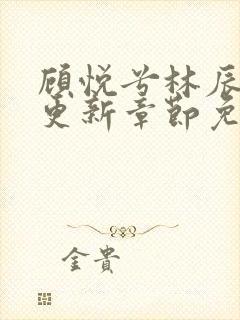 顾悦兮林辰
更新章節免
金貴